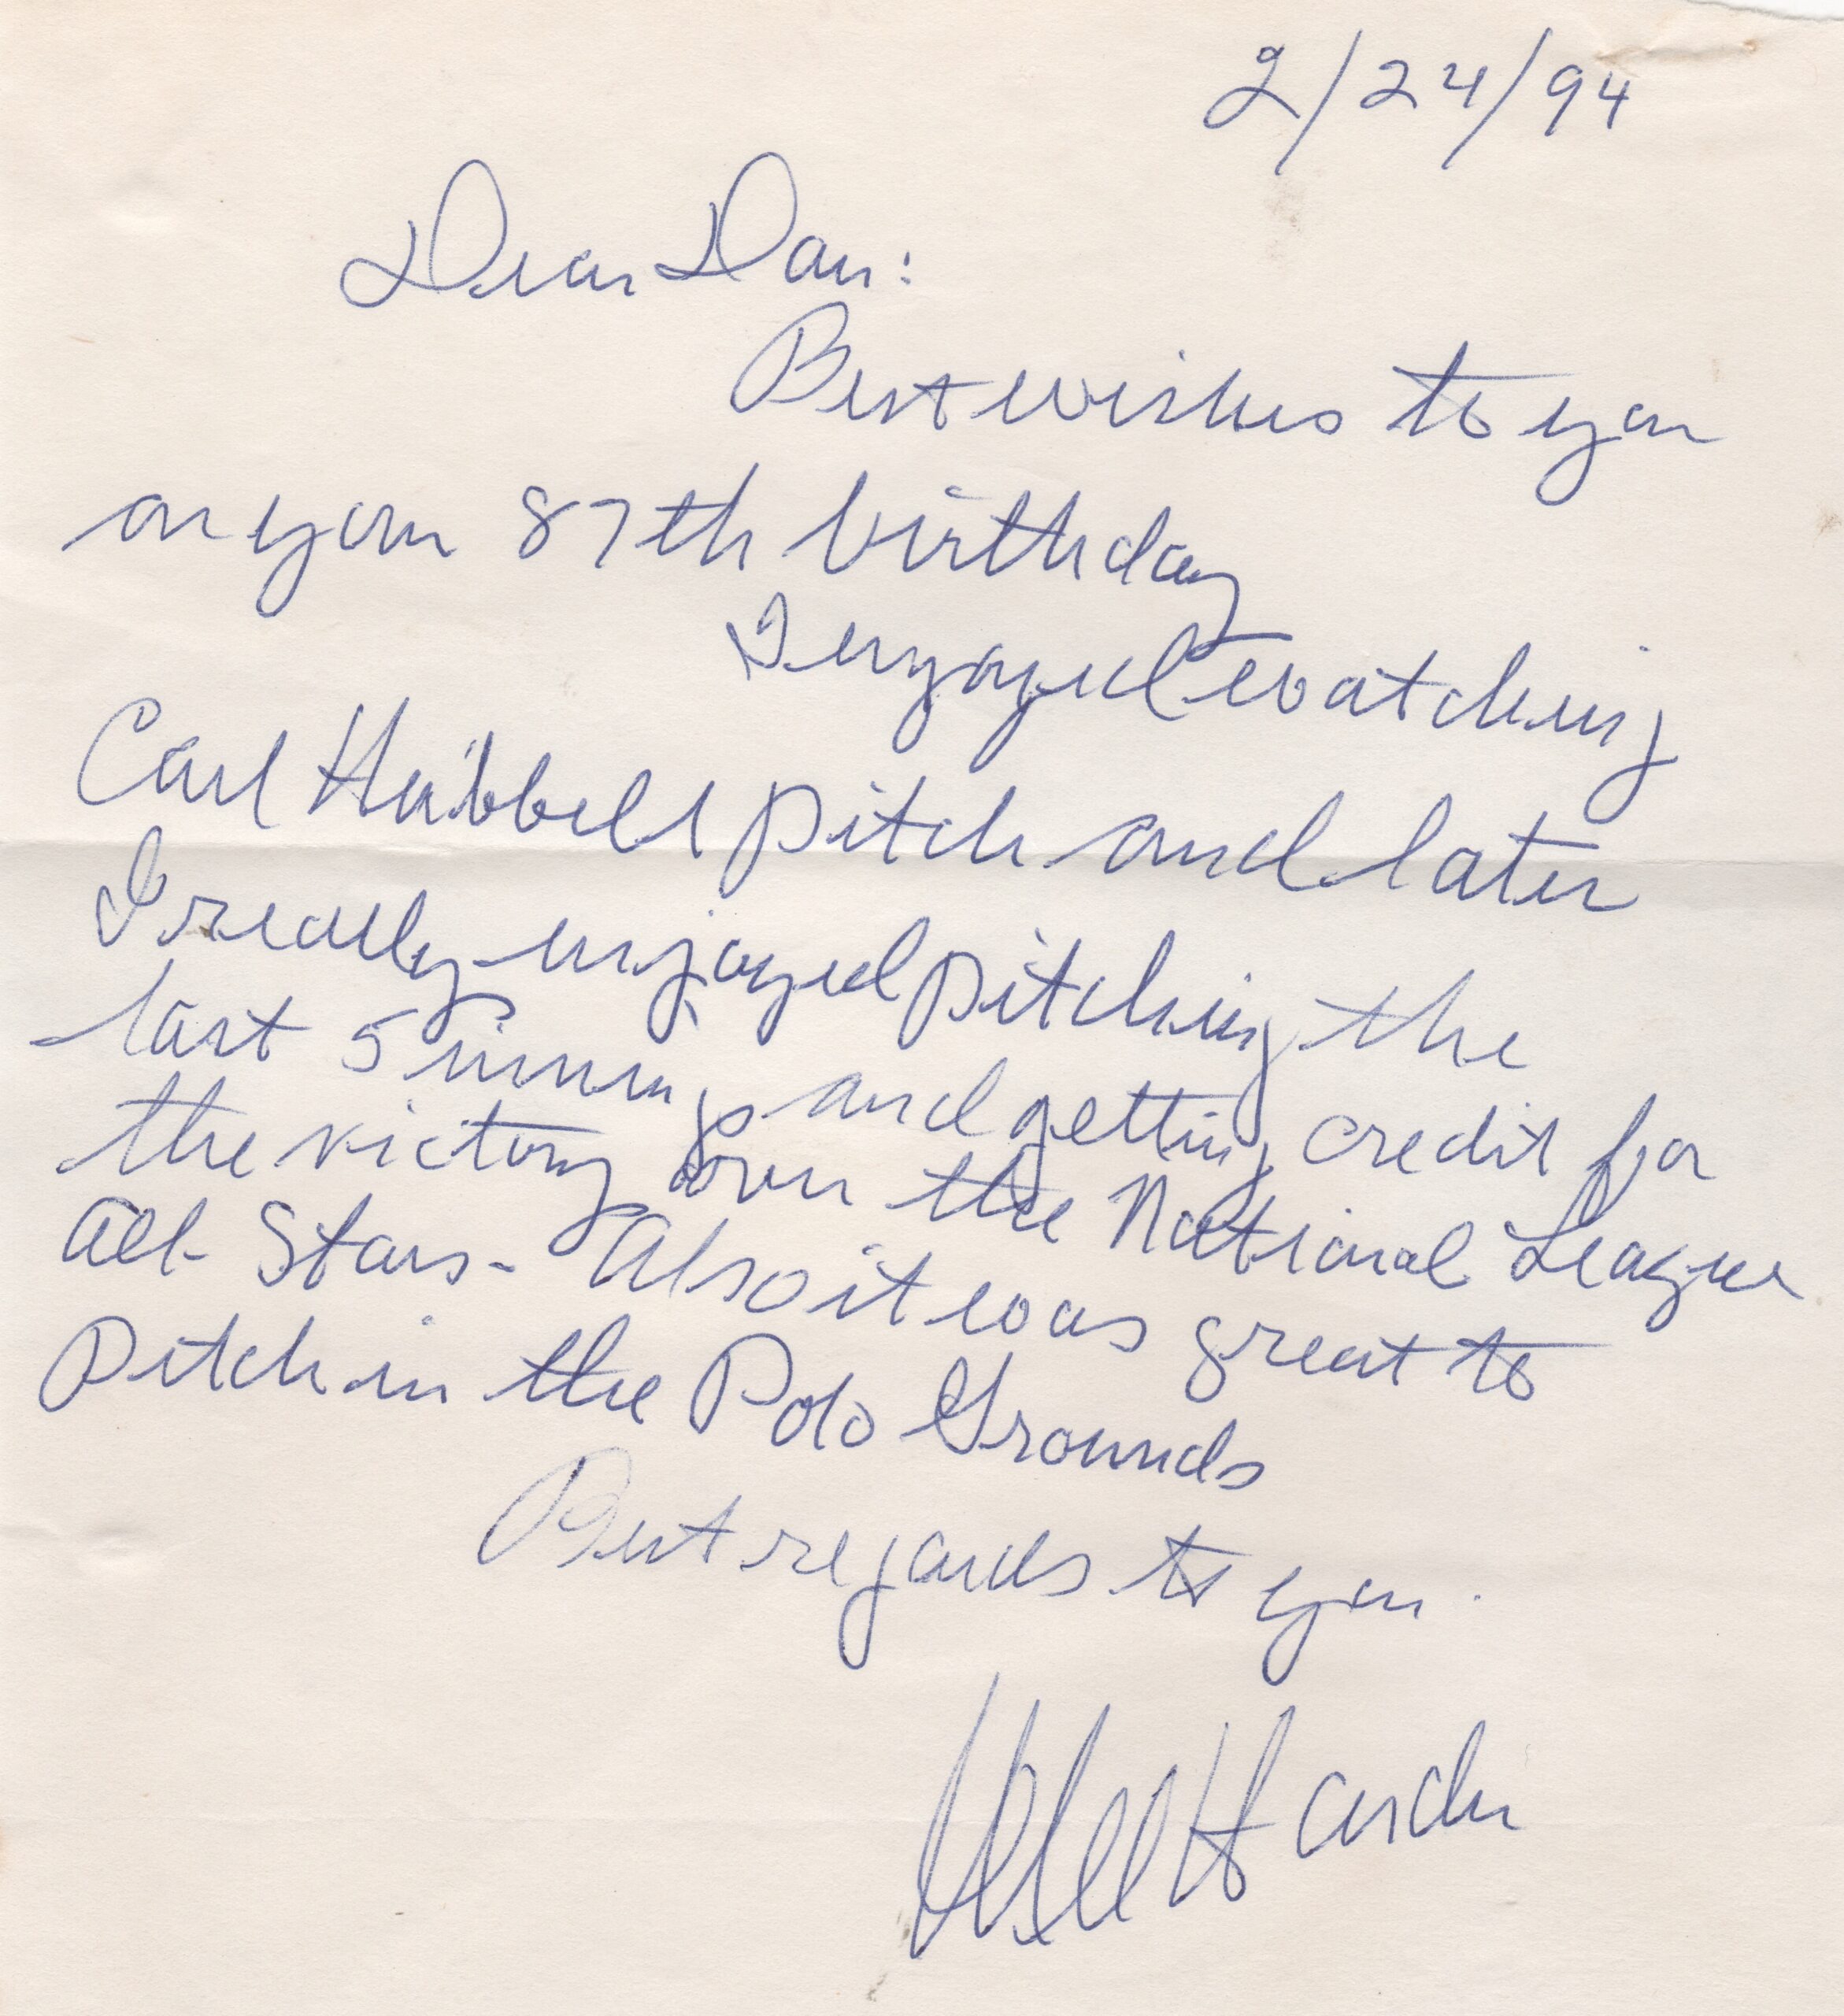 2/24/94
Dear Dan:
Best wishes to you
on your 87th birthday
I enjoyed watching
Carl Hubbell pitch and later
I really enjoyed pitching the
last 5 innings and getting credit for
the victory over the National League
All-Stars - Also it was great to
pitch in the Polo Grounds
Best regards to you.
Mel Harder